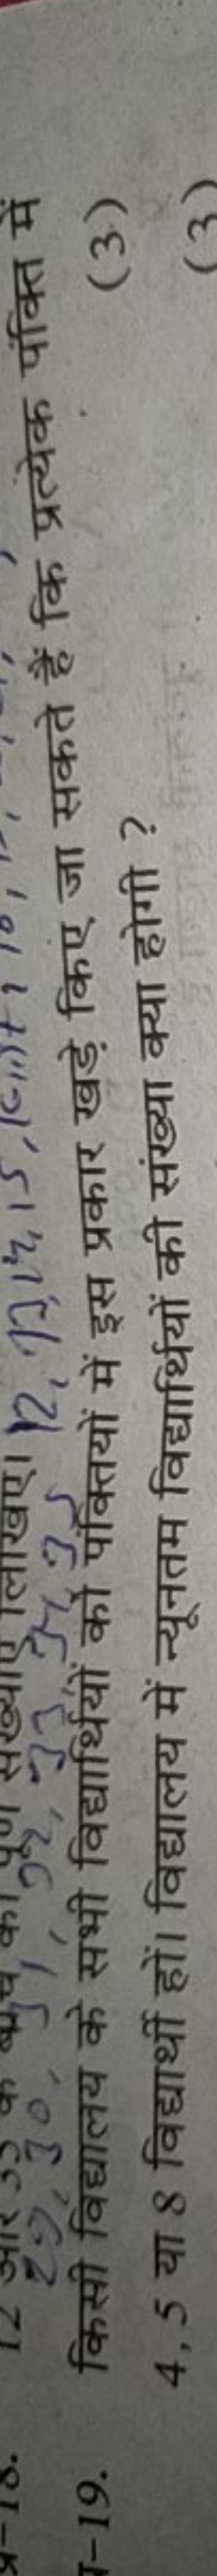 प्र-18. 12 और 35 के बीच की पूर्ण संख्याएँ लिखिए। 12, 13, 14, 15,
29, 30, 32, 33, 34, 35
किसी विद्यालय के सभी विद्यार्थियों को पंक्तियों में इस प्रकार खड़े किए जा सकते हैं कि प्रत्येक पंक्ति में (3)
-19.
4, 5 या 8 विद्यार्थी हों। विद्यालय में न्यूनतम विद्यार्थियों की संख्या क्या होगी ?
(3)